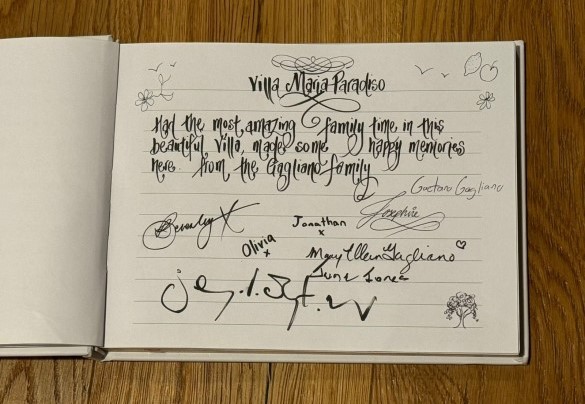 Villa Maria Paradiso
Had the most amazing family time in this
beautiful Villa, made some happy memories
here from the Gagliano family
Gaetano Gagliano
Josephine
Beverley X
Jonathan
x
Olivia
x
Mary Ellen Gagliano
June Jones